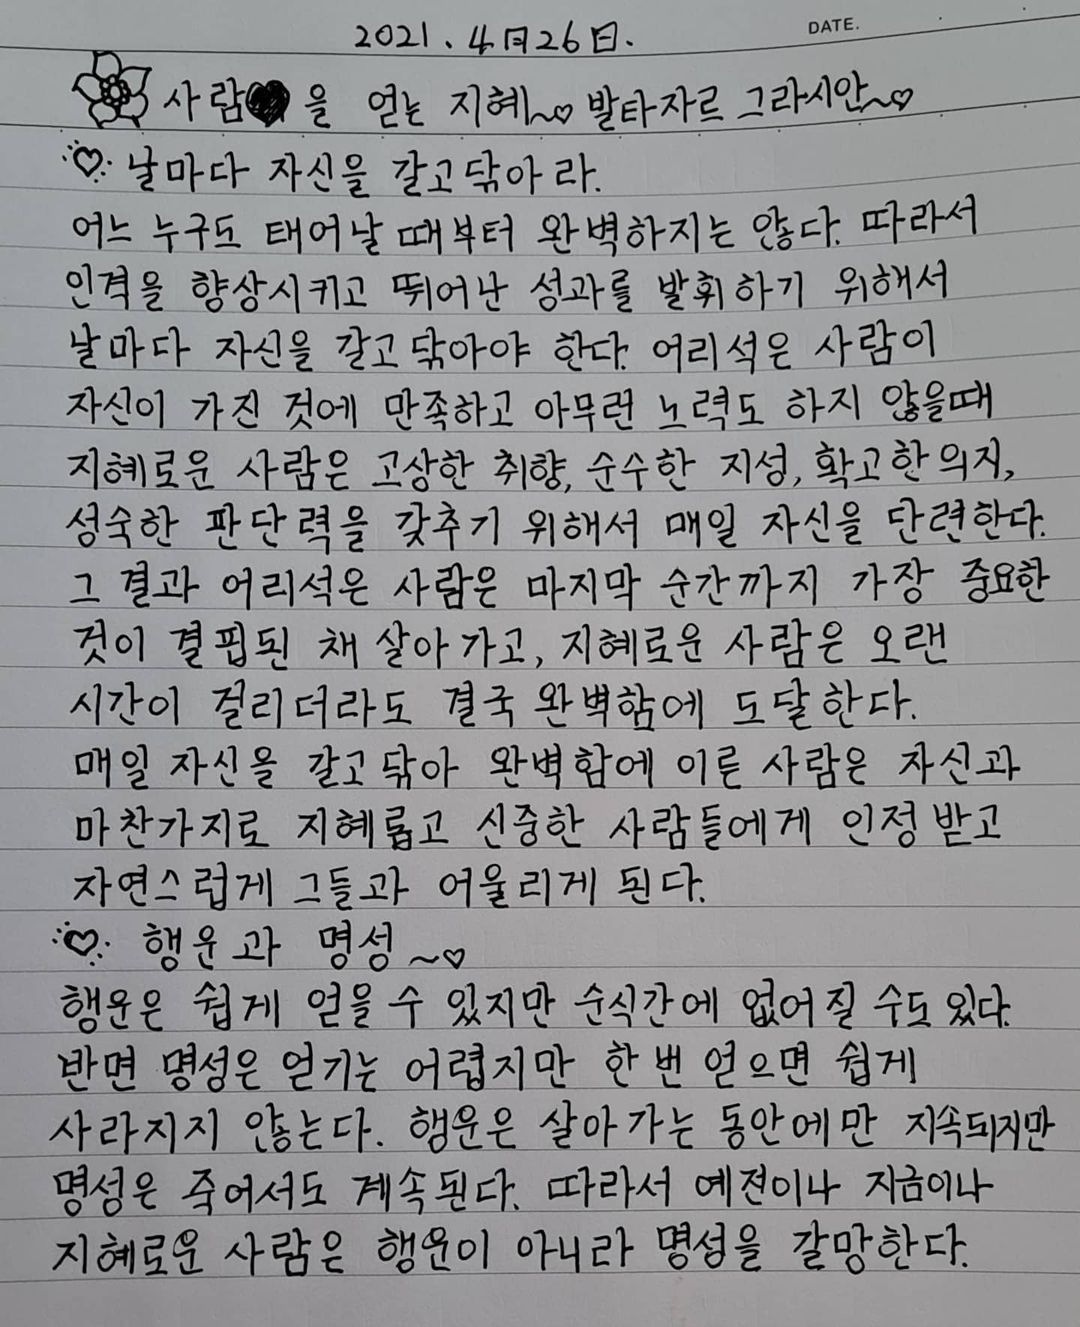 2021. 4月26日.
DATE.
사람을 얻는 지혜~♡ 발타자르 그라시안~♡
♡ 날마다 자신을 갈고닦아라.
어느 누구도 태어날 때부터 완벽하지는 않다. 따라서
인격을 향상시키고 뛰어난 성과를 발휘하기 위해서
날마다 자신을 갈고닦아야 한다. 어리석은 사람이
자신이 가진 것에 만족하고 아무런 노력도 하지 않을때
지혜로운 사람은 고상한 취향, 순수한 지성, 확고한 의지,
성숙한 판단력을 갖추기 위해서 매일 자신을 단련한다.
그 결과 어리석은 사람은 마지막 순간까지 가장 중요한
것이 결핍된 채 살아가고, 지혜로운 사람은 오랜
시간이 걸리더라도 결국 완벽함에 도달한다.
매일 자신을 갈고닦아 완벽함에 이른 사람은 자신과
마찬가지로 지혜롭고 신중한 사람들에게 인정받고
자연스럽게 그들과 어울리게 된다.
♡ 행운과 명성~♡
행운은 쉽게 얻을 수 있지만 순식간에 없어질 수도 있다.
반면 명성은 얻기는 어렵지만 한 번 얻으면 쉽게
사라지지 않는다. 행운은 살아가는 동안에만 지속되지만
명성은 죽어서도 계속된다. 따라서 예전이나 지금이나
지혜로운 사람은 행운이 아니라 명성을 갈망한다.